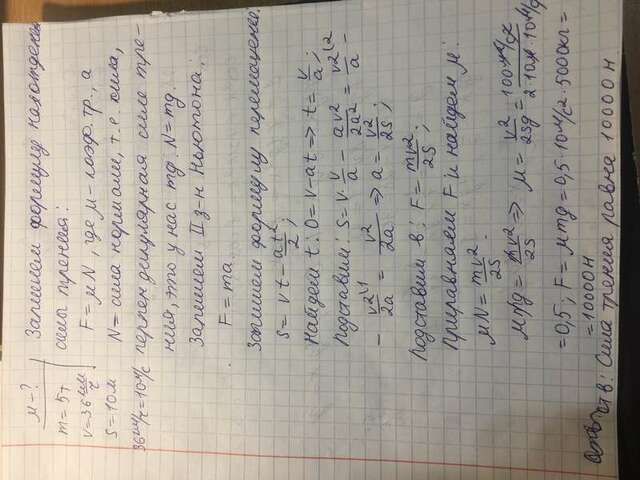 μ-?
m = 5т
v = 36 км/ч
s = 10м
36км/ч = 10м/с
Запишем формулу нахождения
силы трения:
F = μN, где μ - коэф. тр., а
N = сила нормали, т.е. сила,
перпендикулярная силе тре-
ния, это у нас mg. N = mg.
Запишем II з-н Ньютона,
F = ma.
Запишем формулу перемещения:
s = vt - at²/2;
Найдем t: 0 = v - at => t = v/a;
Подставим: s = v · v/a - av²/2a² = v²\2/a -
- v²\1/2a = v²/2a => a = v²/2s;
Подставим в: F = mv²/2s;
Приравняем F и найдем μ:
μN = mv²/2s.
μmg = mv²/2s => μ = v²/2sg = 100 м²/с²/2·10м·10м/с²
= 0,5; F = μmg = 0,5 · 10м/с² · 5000кг =
= 10000Н
Отв: Сила трения равна 10000Н